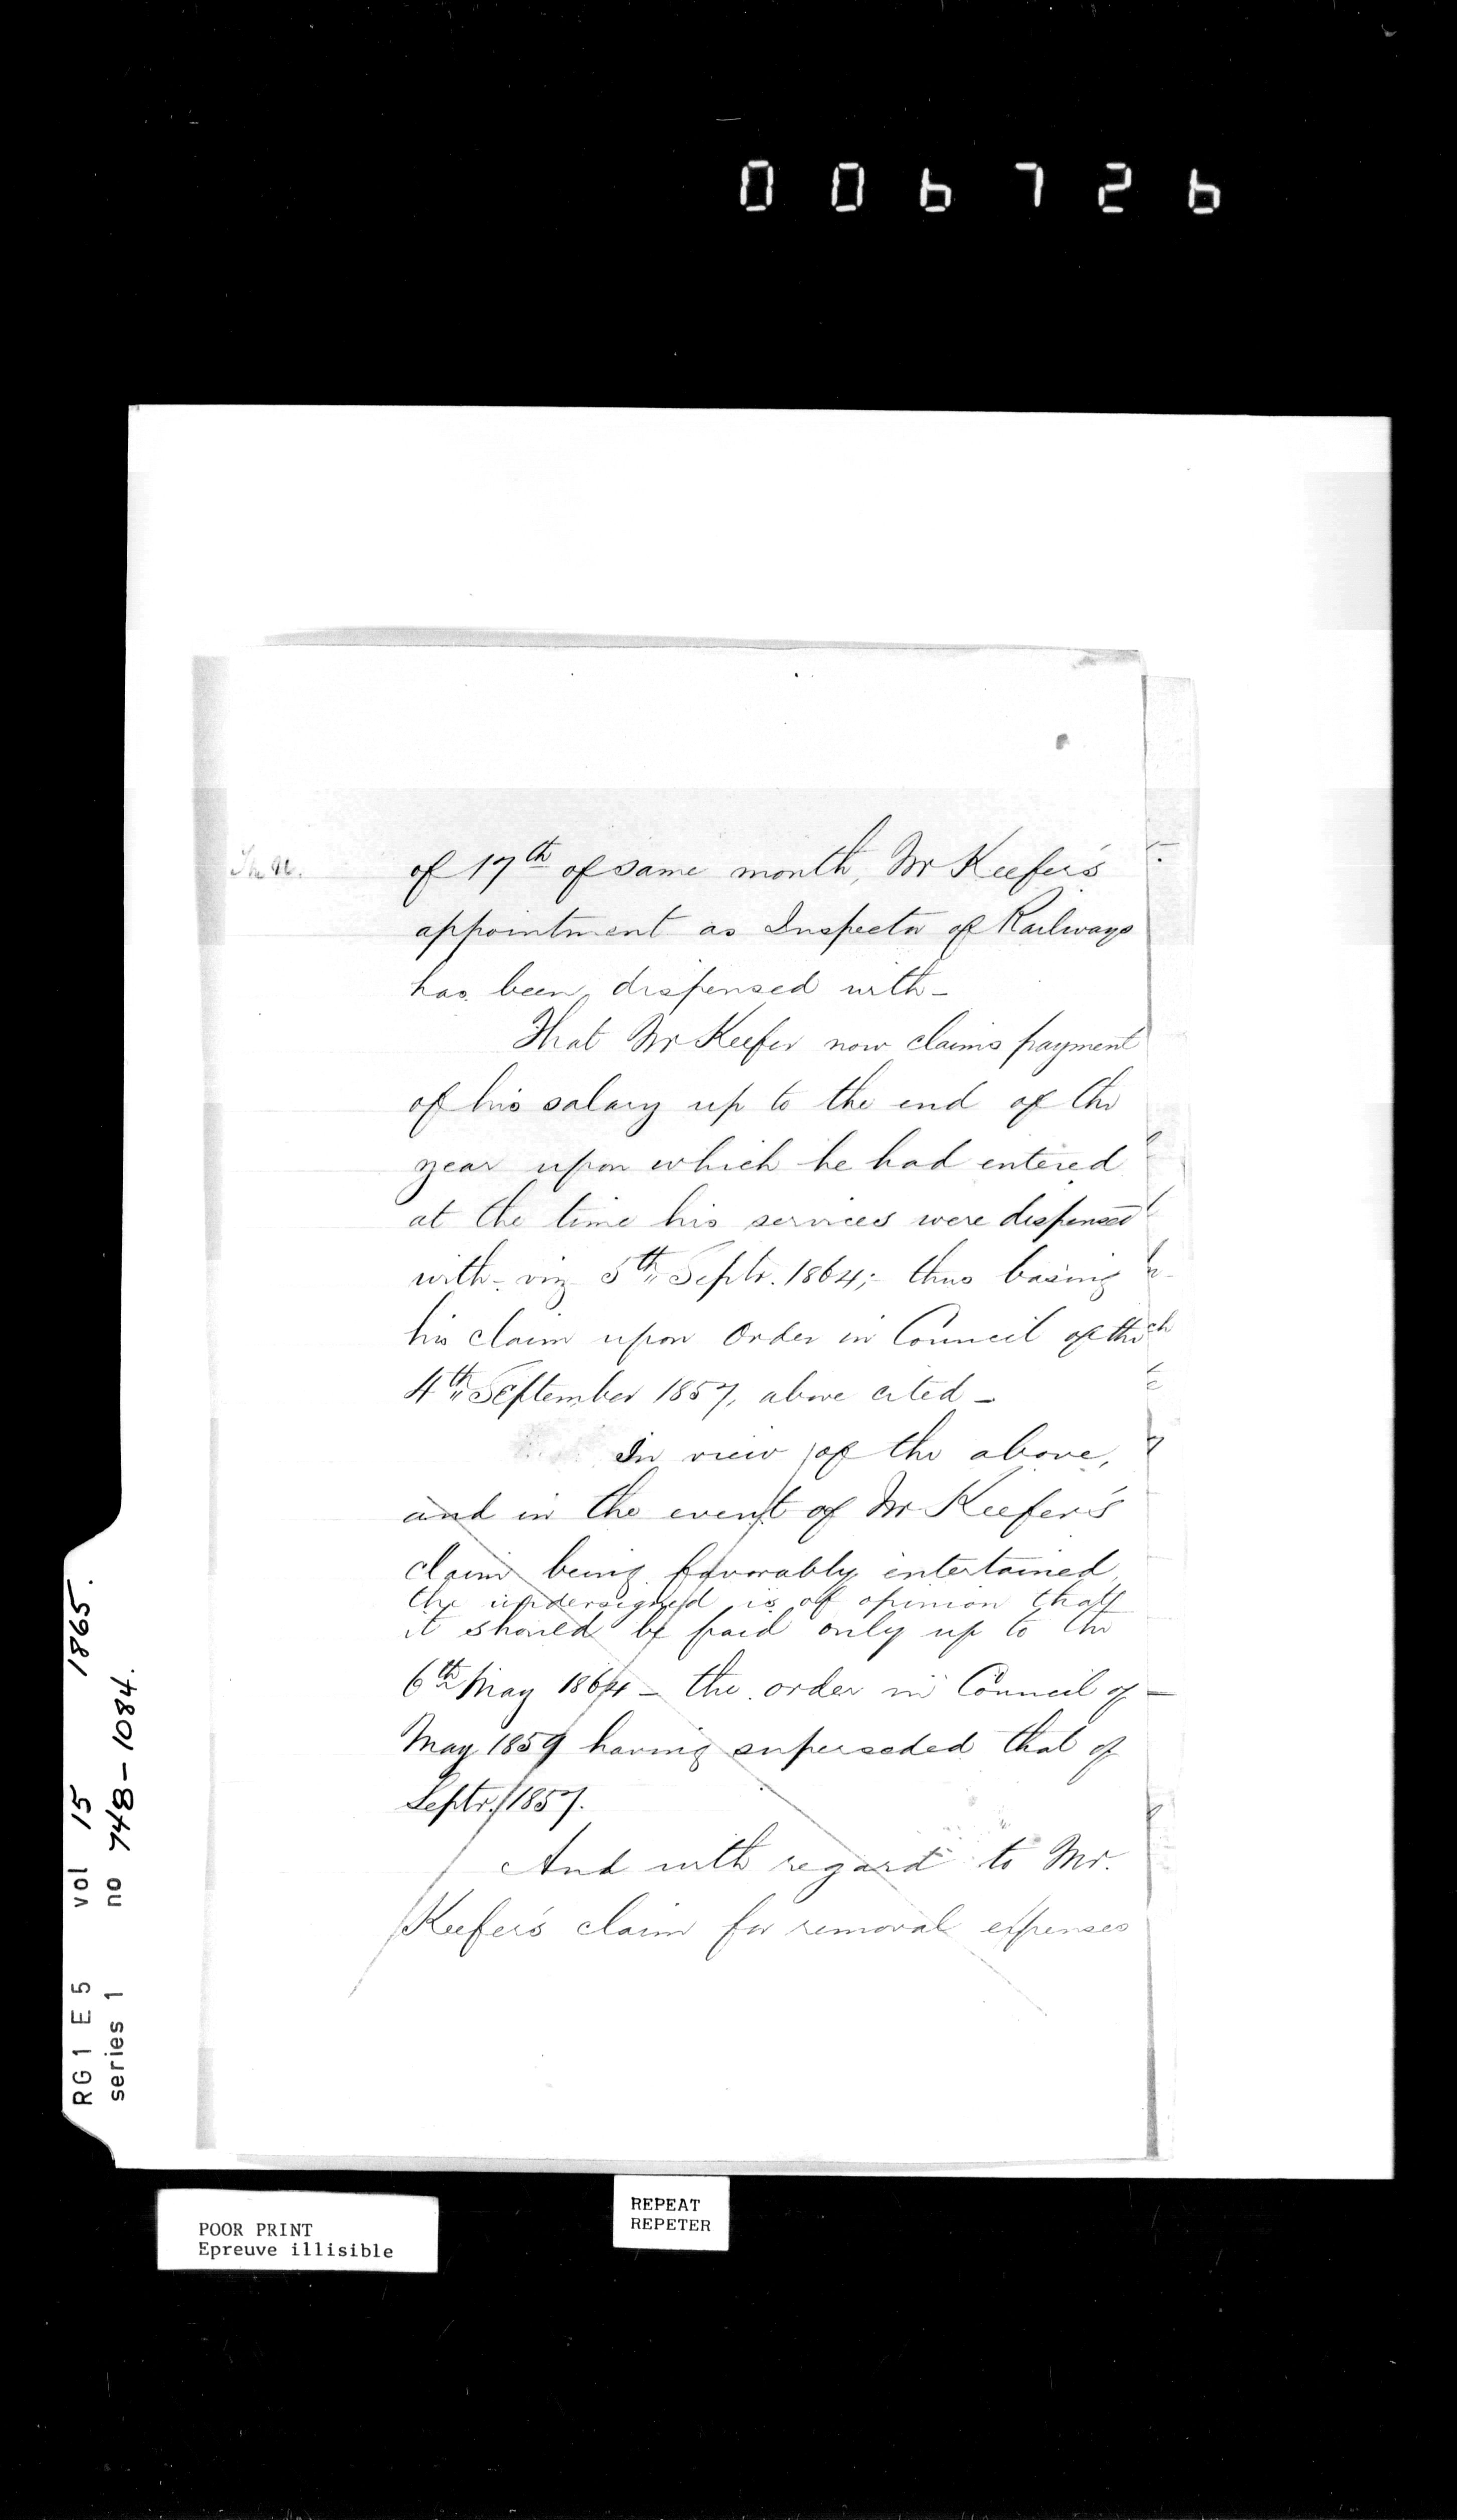 006726
of 17th of same month, Mr Keefer's
appointment as Inspector of Railways
has been dispensed with -
That Mr Keefer now claims payment
of his salary up to the end of the
year upon which he had entered
at the time his services were dispensed
with - viz 5th Septr. 1864; - thus basing
his claim upon Order in Council of the
4th September 1857, above cited -
In view of the above,
and in the event of Mr Keefer's
claim being favorably entertained,
the undersigned is of opinion that
it should be paid only up to the
6th May 1864 - the order in Council of -
May 1859 having superseded that of
Septr. 1857.
And with regard to Mr.
Keefer's claim for removal expenses
RG1 E5 vol 15 1865.
series 1 no 748-1084.
POOR PRINT
Epreuve illisible
REPEAT
REPETER